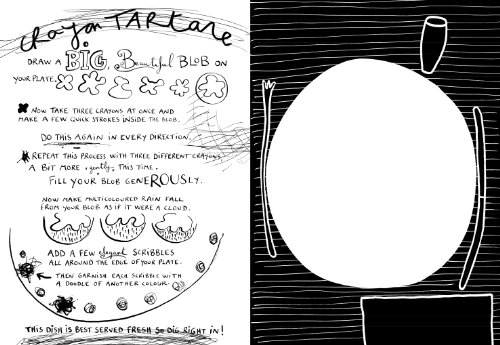 CRAYON TARTARE
DRAW A BIG, Beautiful BLOB ON
YOUR PLATE.
NOW TAKE THREE CRAYONS AT ONCE AND
MAKE A FEW QUICK STROKES INSIDE THE BLOB.
DO THIS AGAIN IN EVERY DIRECTION.
REPEAT THIS PROCESS WITH THREE DIFFERENT CRAYONS
A BIT MORE gently THIS TIME.
FILL YOUR BLOB GENEROUSLY.
NOW MAKE MULTICOLOURED RAIN FALL
FROM YOUR BLOB AS IF IT WERE A CLOUD.
ADD A FEW elegant SCRIBBLES
ALL AROUND THE EDGE OF YOUR PLATE.
THEN GARNISH EACH SCRIBBLE WITH
A DOODLE OF ANOTHER COLOUR.
THIS DISH IS BEST SERVED FRESH SO DIG RIGHT IN!